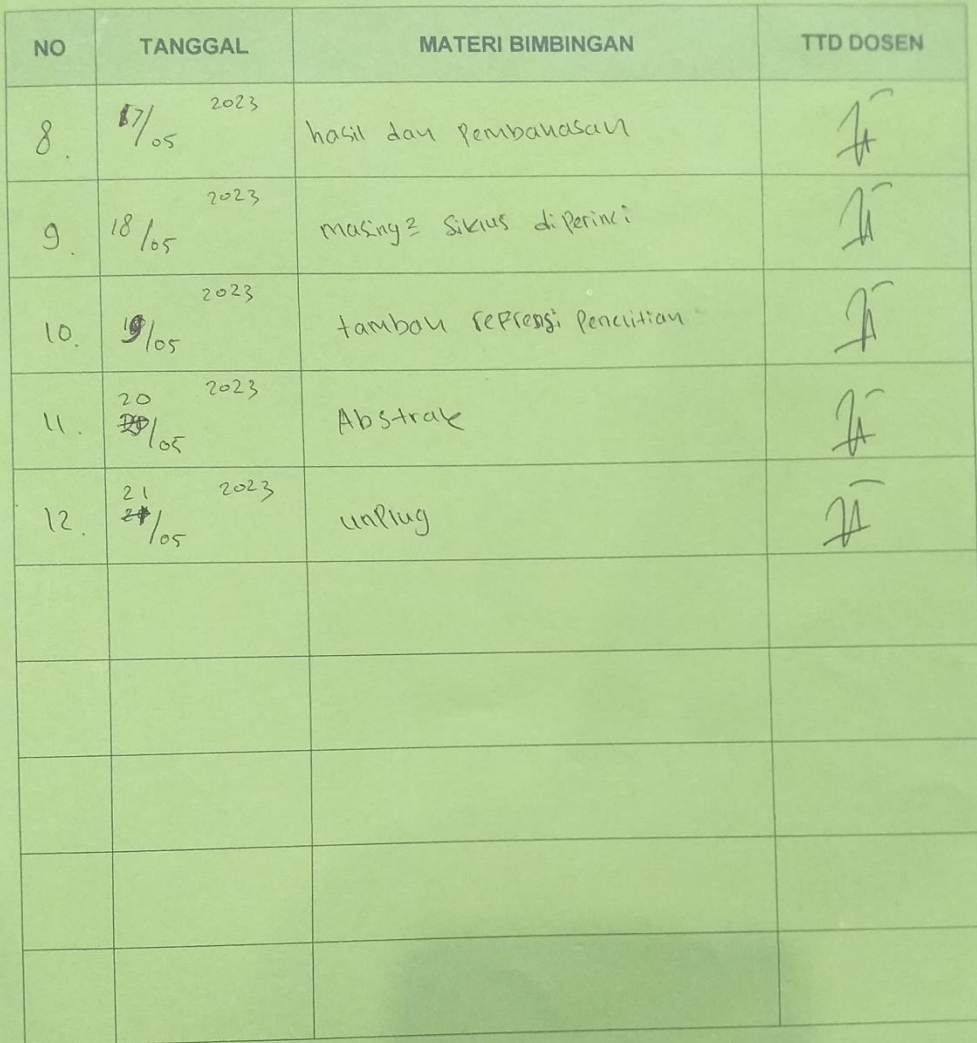 NO TANGGAL MATERI BIMBINGAN TTD DOSEN
8. 17/05 2023 hasil dan Pembahasan
9. 18/05 2023 masing2 Siklus diperinci
10. 19/05 2023 tambah refrensi Penelitian
11. 20/05 2023 Abstrak
12. 21/05 2023 unPlug